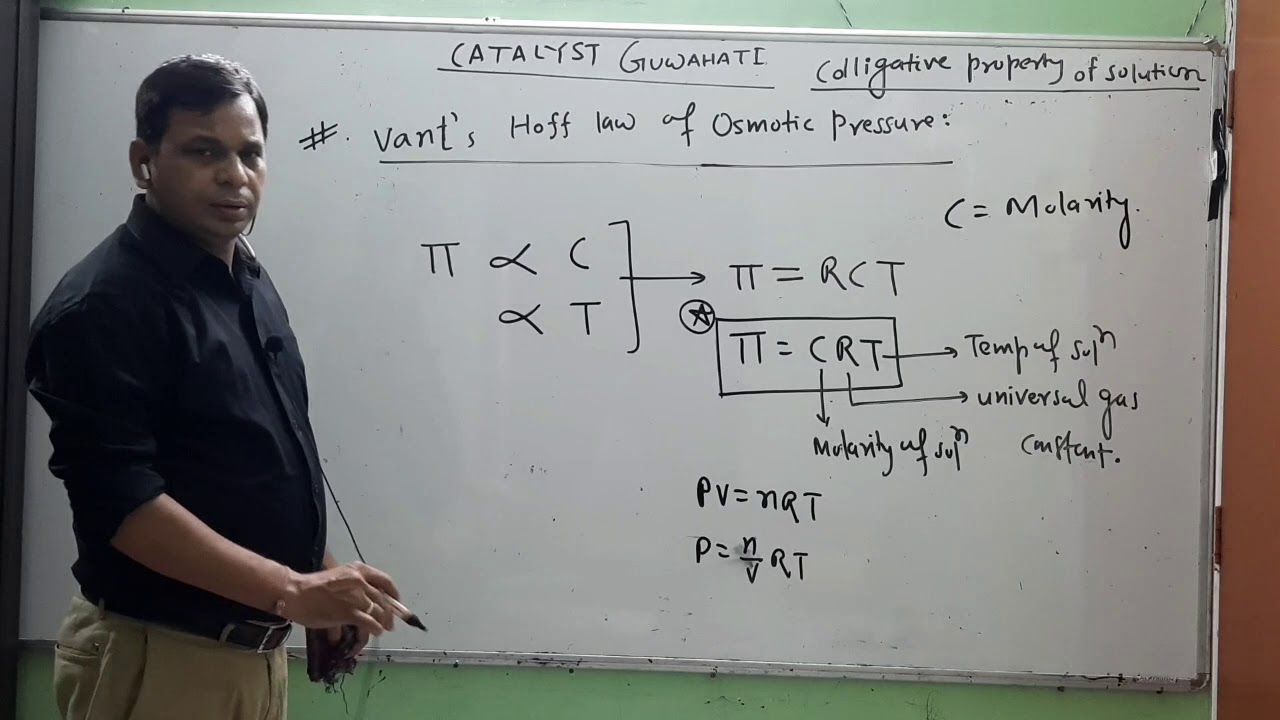 CATALYST GUWAHATI
Colligative property of solution
#. Vant's Hoff law of Osmotic Pressure:
C = Molarity.
π ∝ C
∝ T
π = RCT
π = CRT
Temp of solⁿ
universal gas
constant.
Molarity of solⁿ
PV = nRT
P = n/V RT